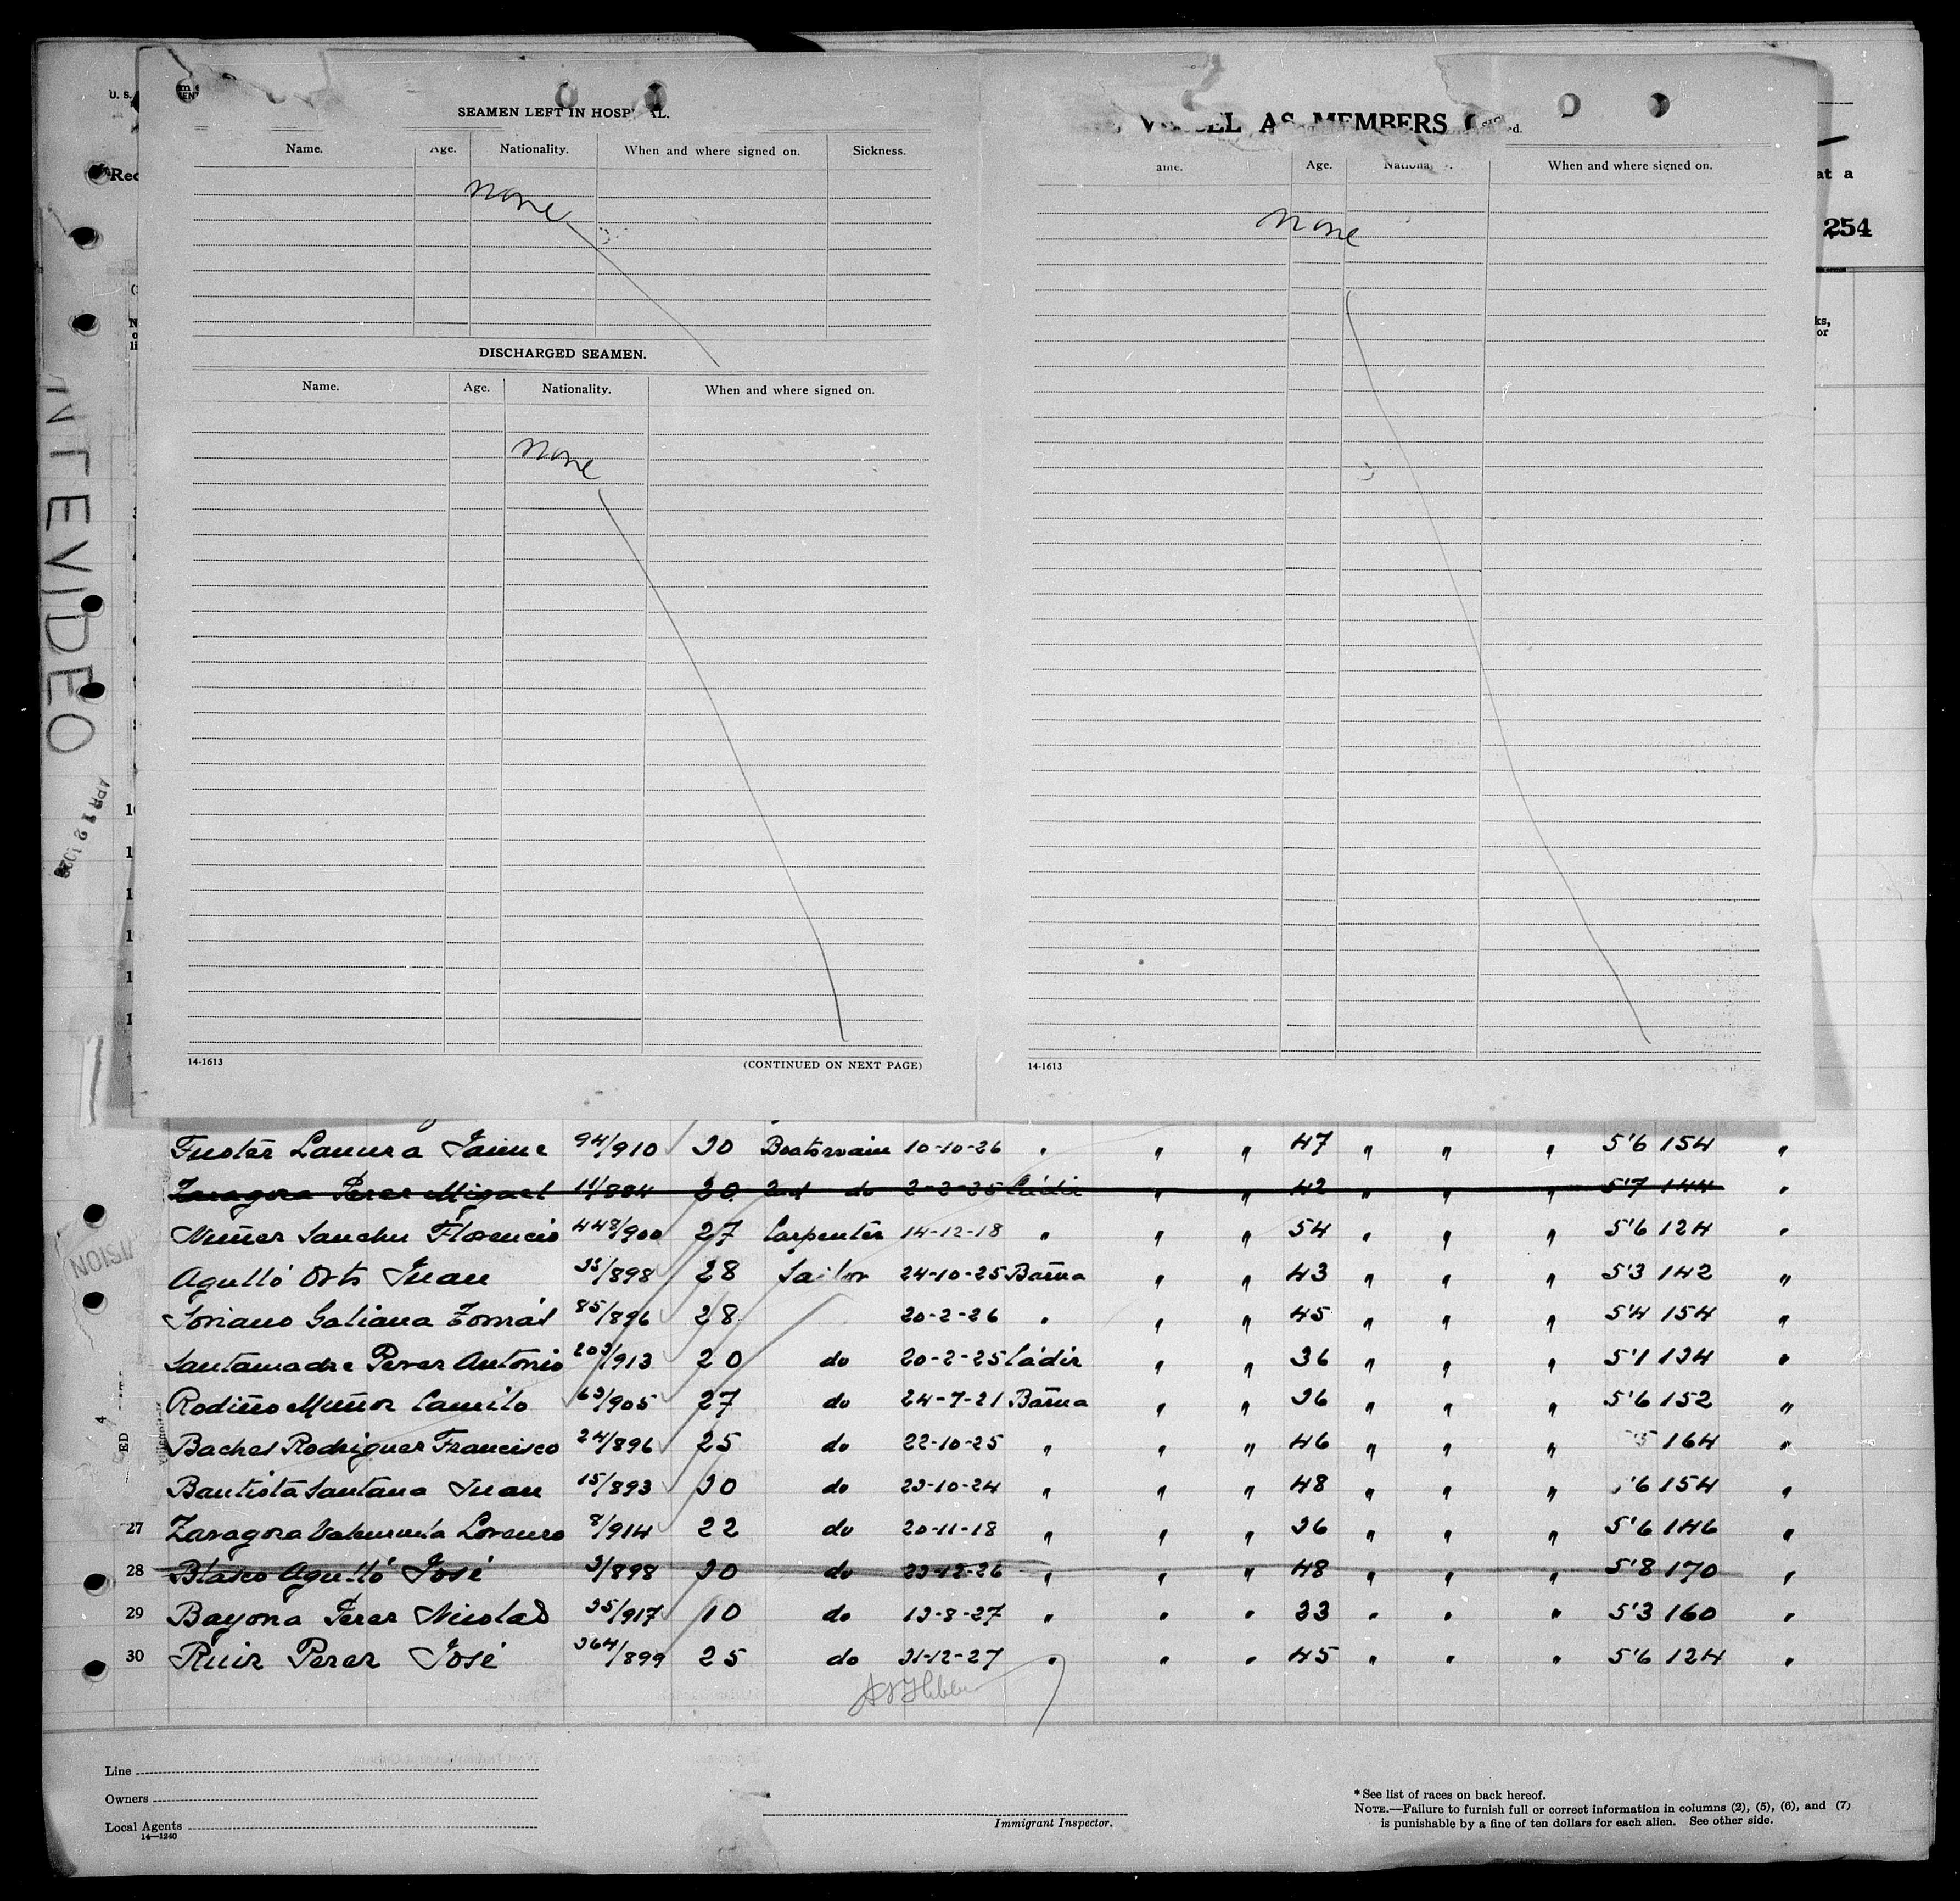 U. S.
SEAMEN LEFT IN HOSP
Name. Age. Nationality. When and where signed on. Sickness.
none
DISCHARGED SEAMEN.
Name. Age. Nationality. When and where signed on.
none
14-1613 (CONTINUED ON NEXT PAGE)
AS MEMBERS
ame. Age. Nationa When and where signed on.
none
14-1613
Rec
at a
254
ks,
or
NTEVIDEO
APR 12 192
Fuster Jaime 94/910 30 Boatswain 10-10-26 " " " 47 " " " 5'6 154 "
Zaragoza Perez Miguel 11/884 20 2nd do 2-2-25 Cádiz " " 42 " " " 5'7 144 "
Muñoz Sanchez Florencio 448/900 27 Carpenter 14-12-18 " " " 54 " " " 5'6 124 "
Agulló Orts Juan 35/898 28 Sailor 24-10-25 Barna " " 43 " " " 5'3 142 "
Soriano Galiana Tomás 85/896 28 20-2-26 " " " 45 " " " 5'4 154 "
Santamadre Perez Antonio 203/913 20 do 20-2-25 Cádiz " " 36 " " " 5'1 134 "
Rodiño Muñoz Camilo 63/905 27 do 24-7-21 Barna " " 36 " " " 5'6 152 "
Baches Rodriguez Francisco 24/896 25 do 22-10-25 " " " 46 " " " 164 "
Bautista Santana Juan 15/893 30 do 23-10-24 " " " 48 " " " '6 154 "
27 Zaragoza Lorenzo 8/914 22 do 20-11-18 " " " 36 " " " 5'6 146 "
28 Blasco Agulló José 3/898 30 do 23-12-26 " " " 48 " " " 5'8 170 "
29 Bayona Perez Nicolas 35/917 10 do 13-8-27 " " " 33 " " " 5'3 160 "
30 Ruiz Perez José 364/899 25 do 31-12-27 " " " 45 " " " 5'6 124 "
Line
Owners
Local Agents
14—1240
Immigrant Inspector.
* See list of races on back hereof.
NOTE.—Failure to furnish full or correct information in columns (2), (5), (6), and (7)
is punishable by a fine of ten dollars for each alien. See other side.